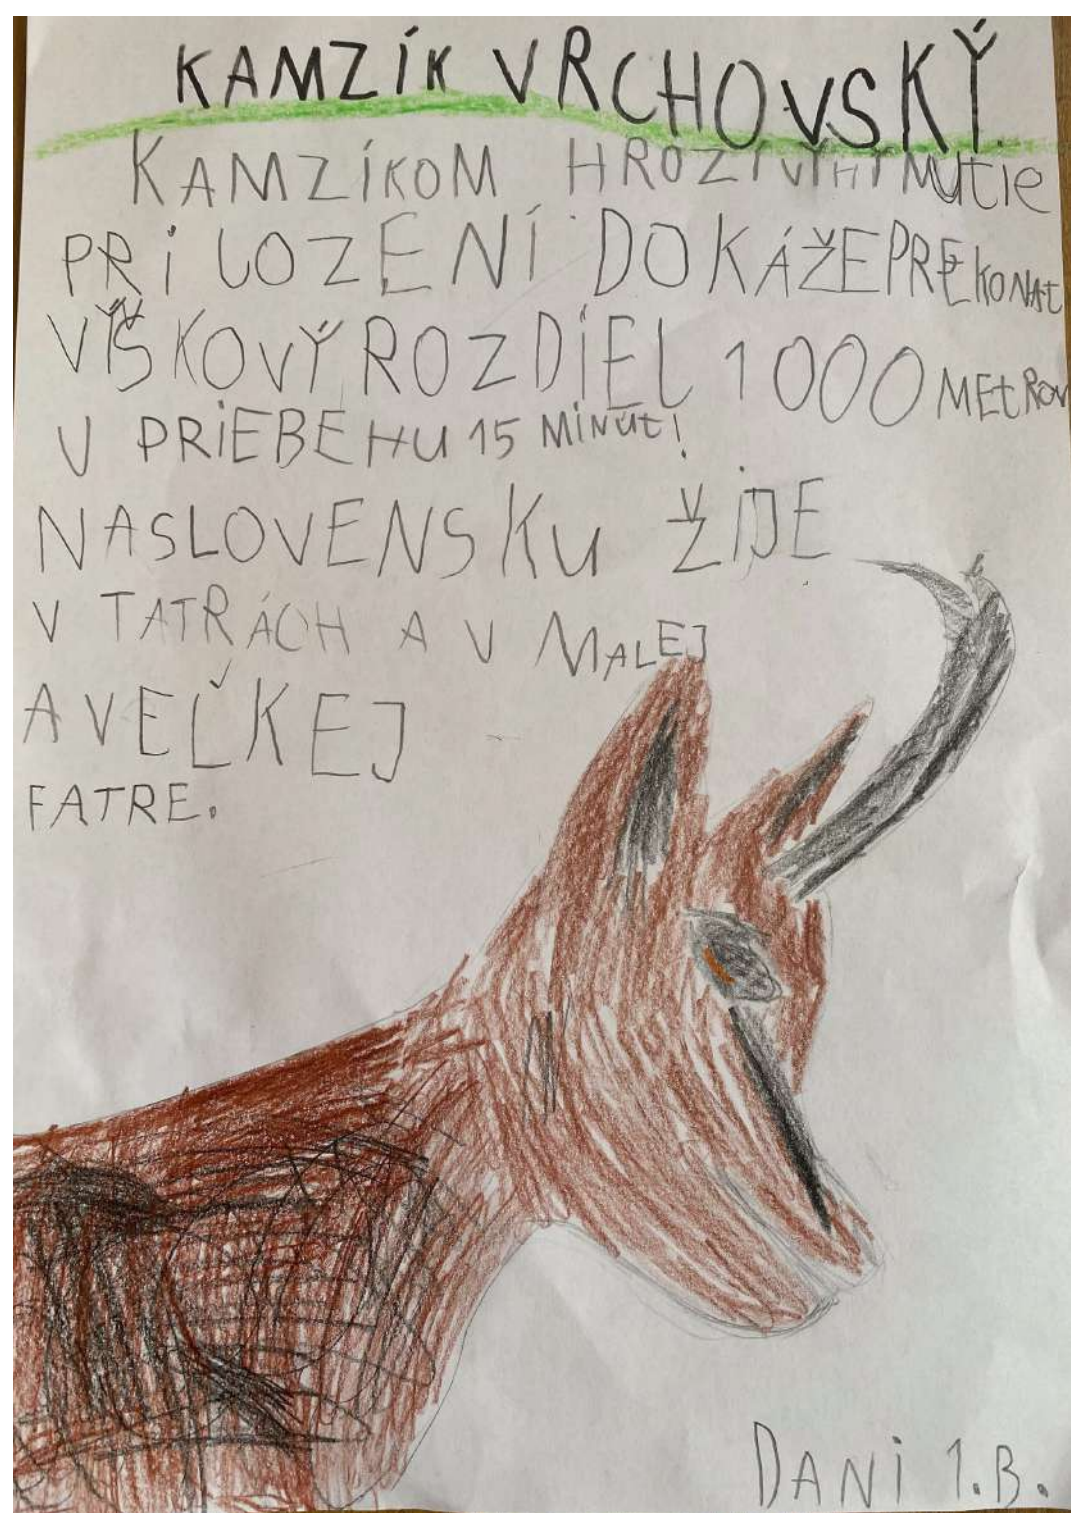 KAMZÍK VRCHOVSKÝ
KAMZÍKOM HROZÍ VYHYNUTIE
PRI LOZENÍ DOKÁŽE PREKONAT
VÍŠKOVÝ ROZDIEL 1000 METROV
V PRIEBEHU 15 MINÚT!
NASLOVENSKU ŽIJE
V TATRÁCH A V MALEJ
A VEĽKEJ
FATRE.
DANI 1.B.